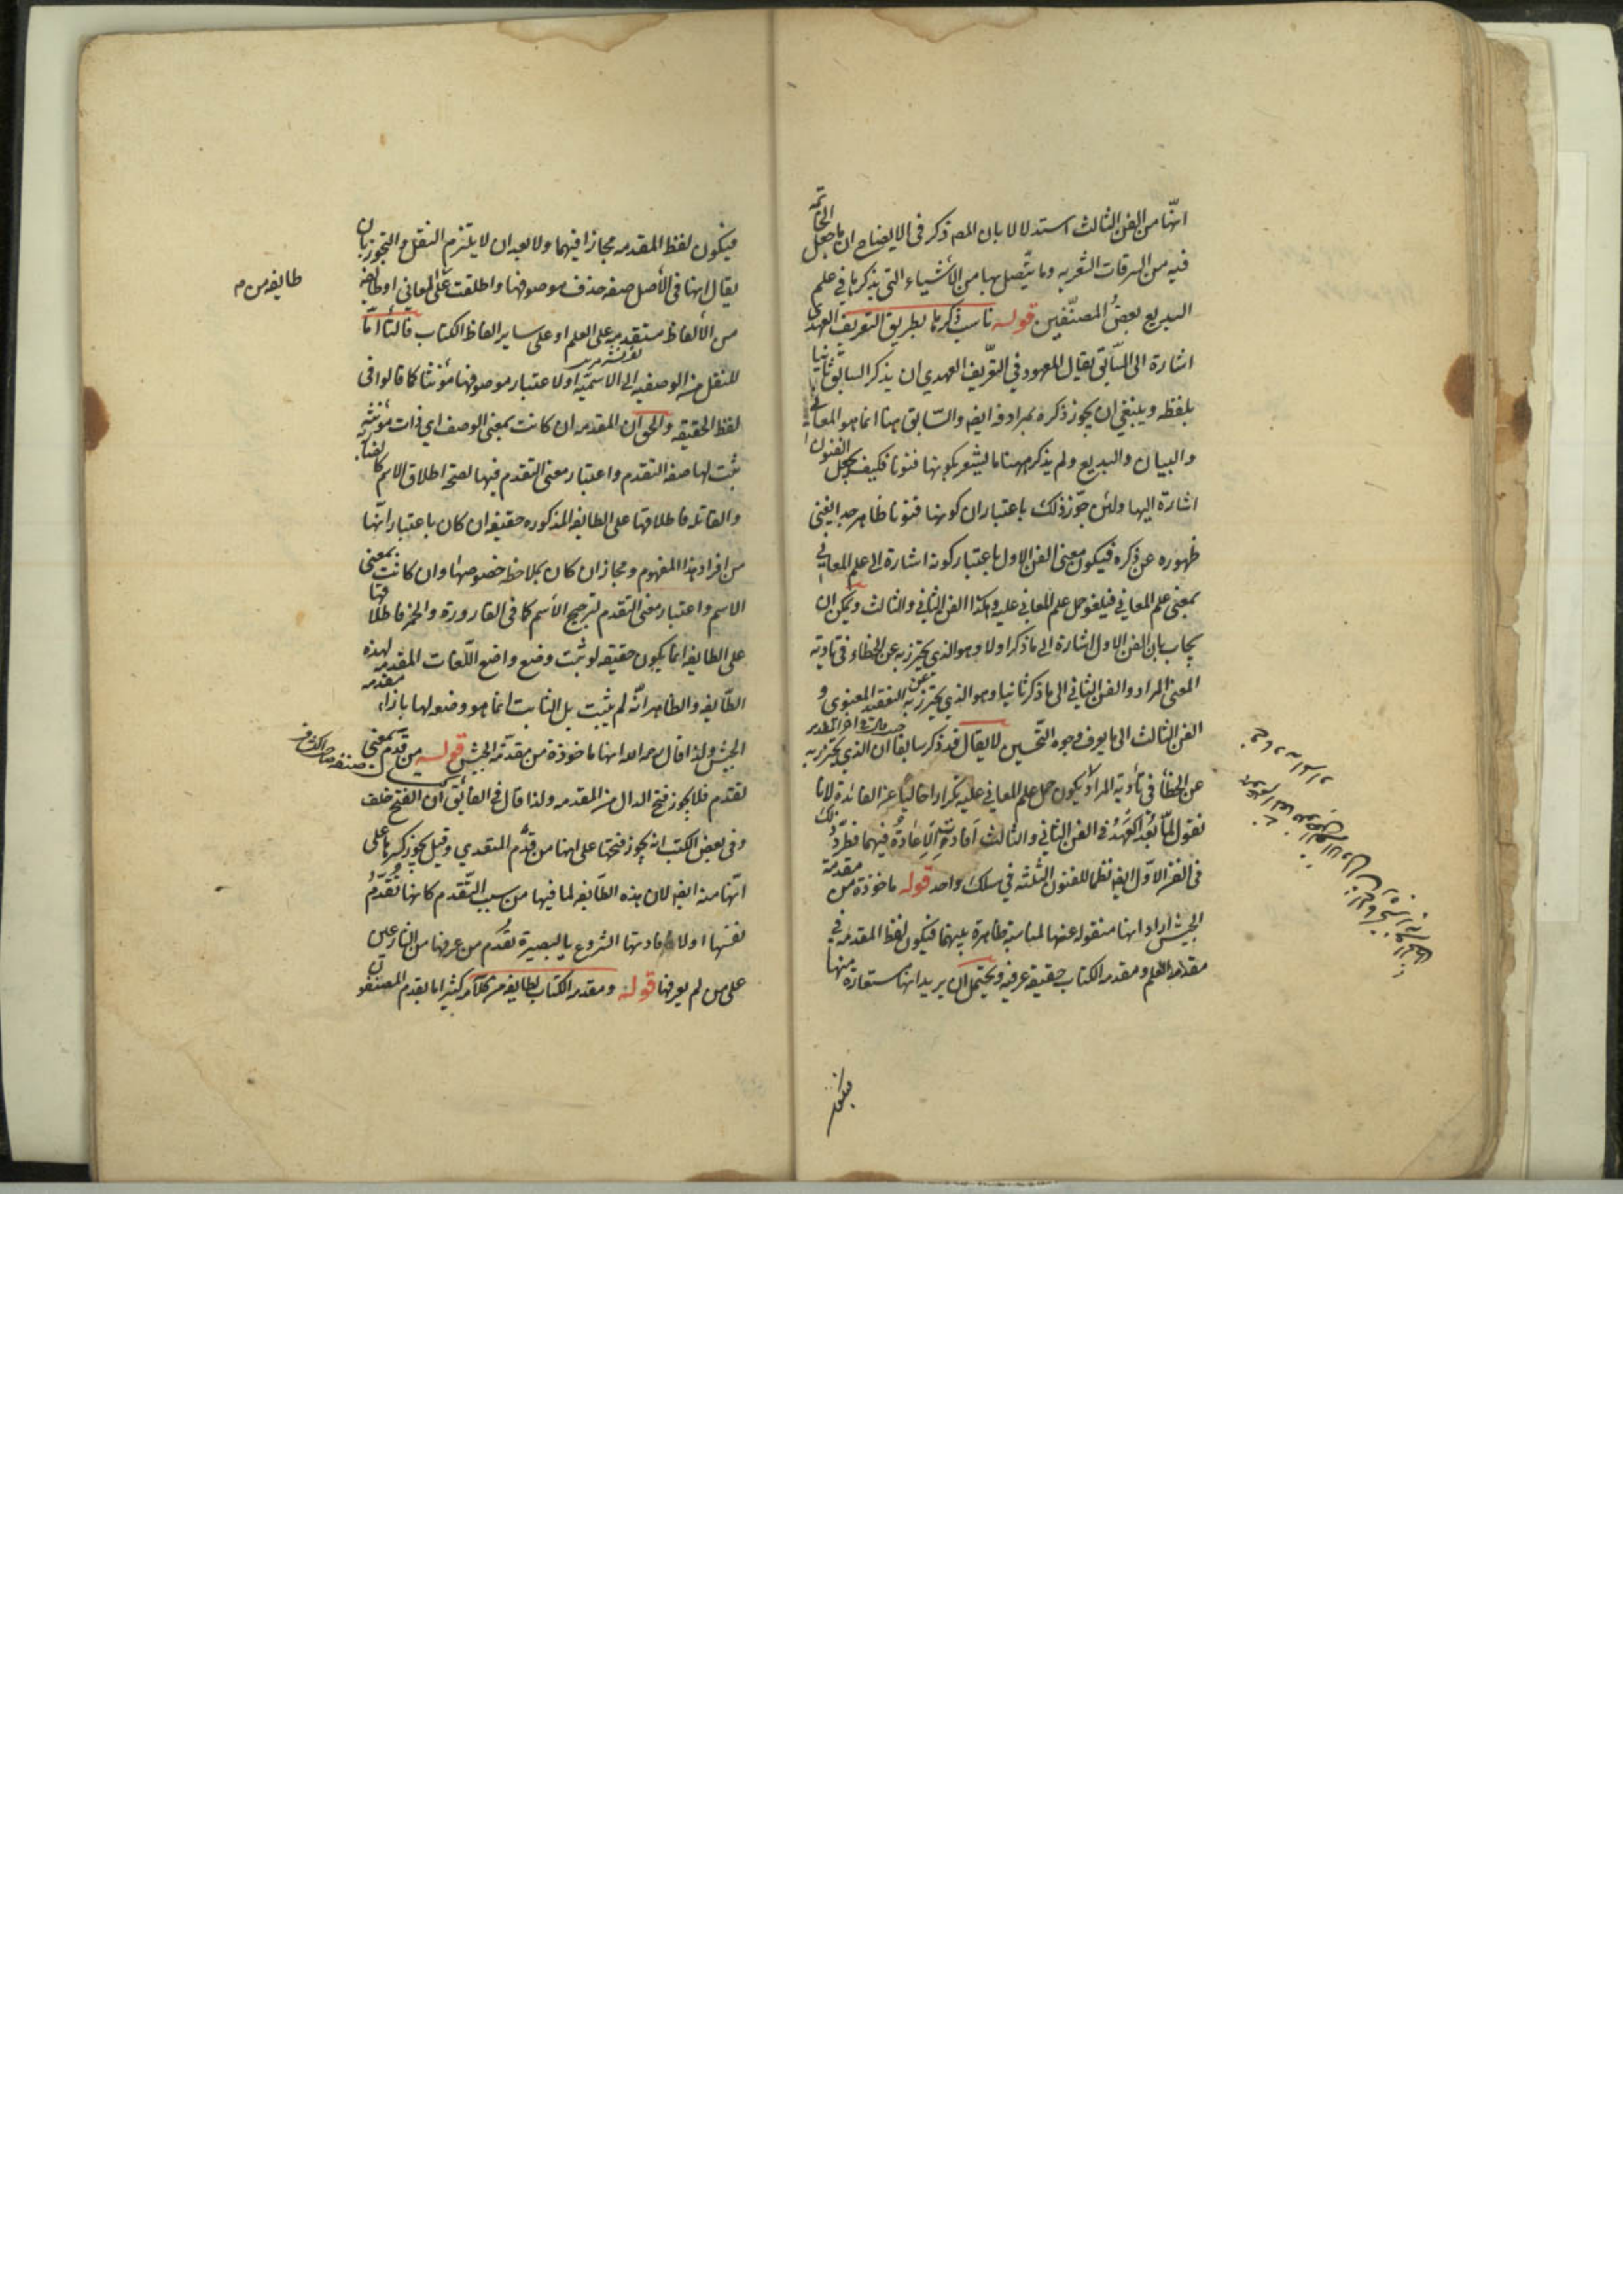 انها من الفن الثالث استدلالا بان المص ذكر فى الايضاح ان ما جعل الخاتمة
فيه من السرقات الشعريه وما يتصل بها من الأشياء التى يذكرها في علم
البديع بعضُ المصنّفين قوله ناسب ذكرها بطريق التعريف العهدى
اشارة الى السّابق يقال المعهود في التّعريف العهدي ان يذكر السابق ثانيا
بلفظه وينبغي ان يجوز ذكره بمرادفه ايضا والسّابق هنا انما هو المعاني
والبيان والبديع ولم يذكر ههنا ما يشعر بكونها فنونا فكيف يجعل الفنون
اشارة اليها ولئن جوّز ذلك باعتبار ان كونها فنونا ظاهر جدا يغني
ظهوره عن ذكره فيكون معنى الفن الاول باعتبار كونه اشارة الى علم المعاني
بمعنى علم المعاني فيلغو حمل علم المعاني عليه وهكذا الفن الثاني والثالث ويمكن ان
يجاب بان الفن الاول اشارة الى ما ذكر اولا وهو الذي يحترز به عن الخطاء فى تادية
المعنى المراد والفن الثاني الى ما ذكر ثانيا وهو الذي يحترز به عن التعقيد المعنوى و
الفن الثالث الى ما يعرف وجوه التّحسين لا يقال قد ذكر سابقا ان الذي يحترز به
عن الخطأ فى تأدية المراد يكون حمل علم المعاني عليه تكرارا خاليا عن الفائدة لانا
نقول لمّا بعُد العَهْدُ فى الفن الثاني والثالث افادت الاعادةُ فيهما فطرّد ذلك
فى الفن الاوّل ايضا نظما للفنون الثلثه في سلك واحد قوله ماخوذة من مقدمة
الجيش اراد انها منقوله عنها لمناسبة ظاهرة بينهما فيكون لفظ المقدمه في
مقدمة العلم ومقدمة الكتاب حقيقة عرفيه ويحتمل ان يريد انها مستعارة منها
فيكون
فيكون لفظ المقدمه مجازا فيهما ولا بعد ان لا يلتزم النقل والتجوز بان
يقال انها فى الأصل صفه حذف موصوفها واطلقت على المعاني او طايفه
طايفه من
من الألفاظ متقدمه على العلم او على ساير الفاظ الكتاب فالتا امّا
للنقل من الوصفيه الى الاسميّه اولا عتبار موصوفها مؤنثا كما قالوا فى
لفظ الحقيقه والحق ان المقدمه ان كانت بمعنى الوصف اي ذات مؤنثه
ثبت لها صفه التقدم واعتبار معنى التقدم فيها لصحة اطلاق الاسم كالضاربه
والقاتله فاطلاقها على الطايفه المذكوره حقيقه ان كان باعتبار انّها
من افراد هذا المفهوم ومجاز ان كان بملاحظه خصوصها وان كانت بمعنى
الاسم واعتبار معنى التقدم لترجيح الاسم كما فى القارورة والخمر فاطلاقها
على الطايفه انما يكون حقيقه لو ثبت وضع واضع اللّغات المقدمه لهذه
الطّايفه والظاهر انّه لم يثبت بل الثابت انما هو وضعه لها بازاء مقدمه
الجيش ولذا قال رحمه الله انها ماخوذة من مقدّمة الجيش قوله من قدّم بمعنى
تقدّم فلا يجوز فتح الدال من المقدمه ولذا قال فى الفائق ان الفتح خلف
وفى بعض الكتب انه يجوز فتحها على انها من قدّم المتعدي وقيل يجوز كسرها على
انّها منه ايضا لان هذه الطّايفه لما فيها من سبب التّقدم كانها تقدّمُ
نفسها اولافادتها الشروع بالبصيرة تقدّم من عرفها من الشارعين
على من لم يعرفها قوله ومقدمة الكتاب لطايفه من كلامه كثيرا ما يقدم المصنفون